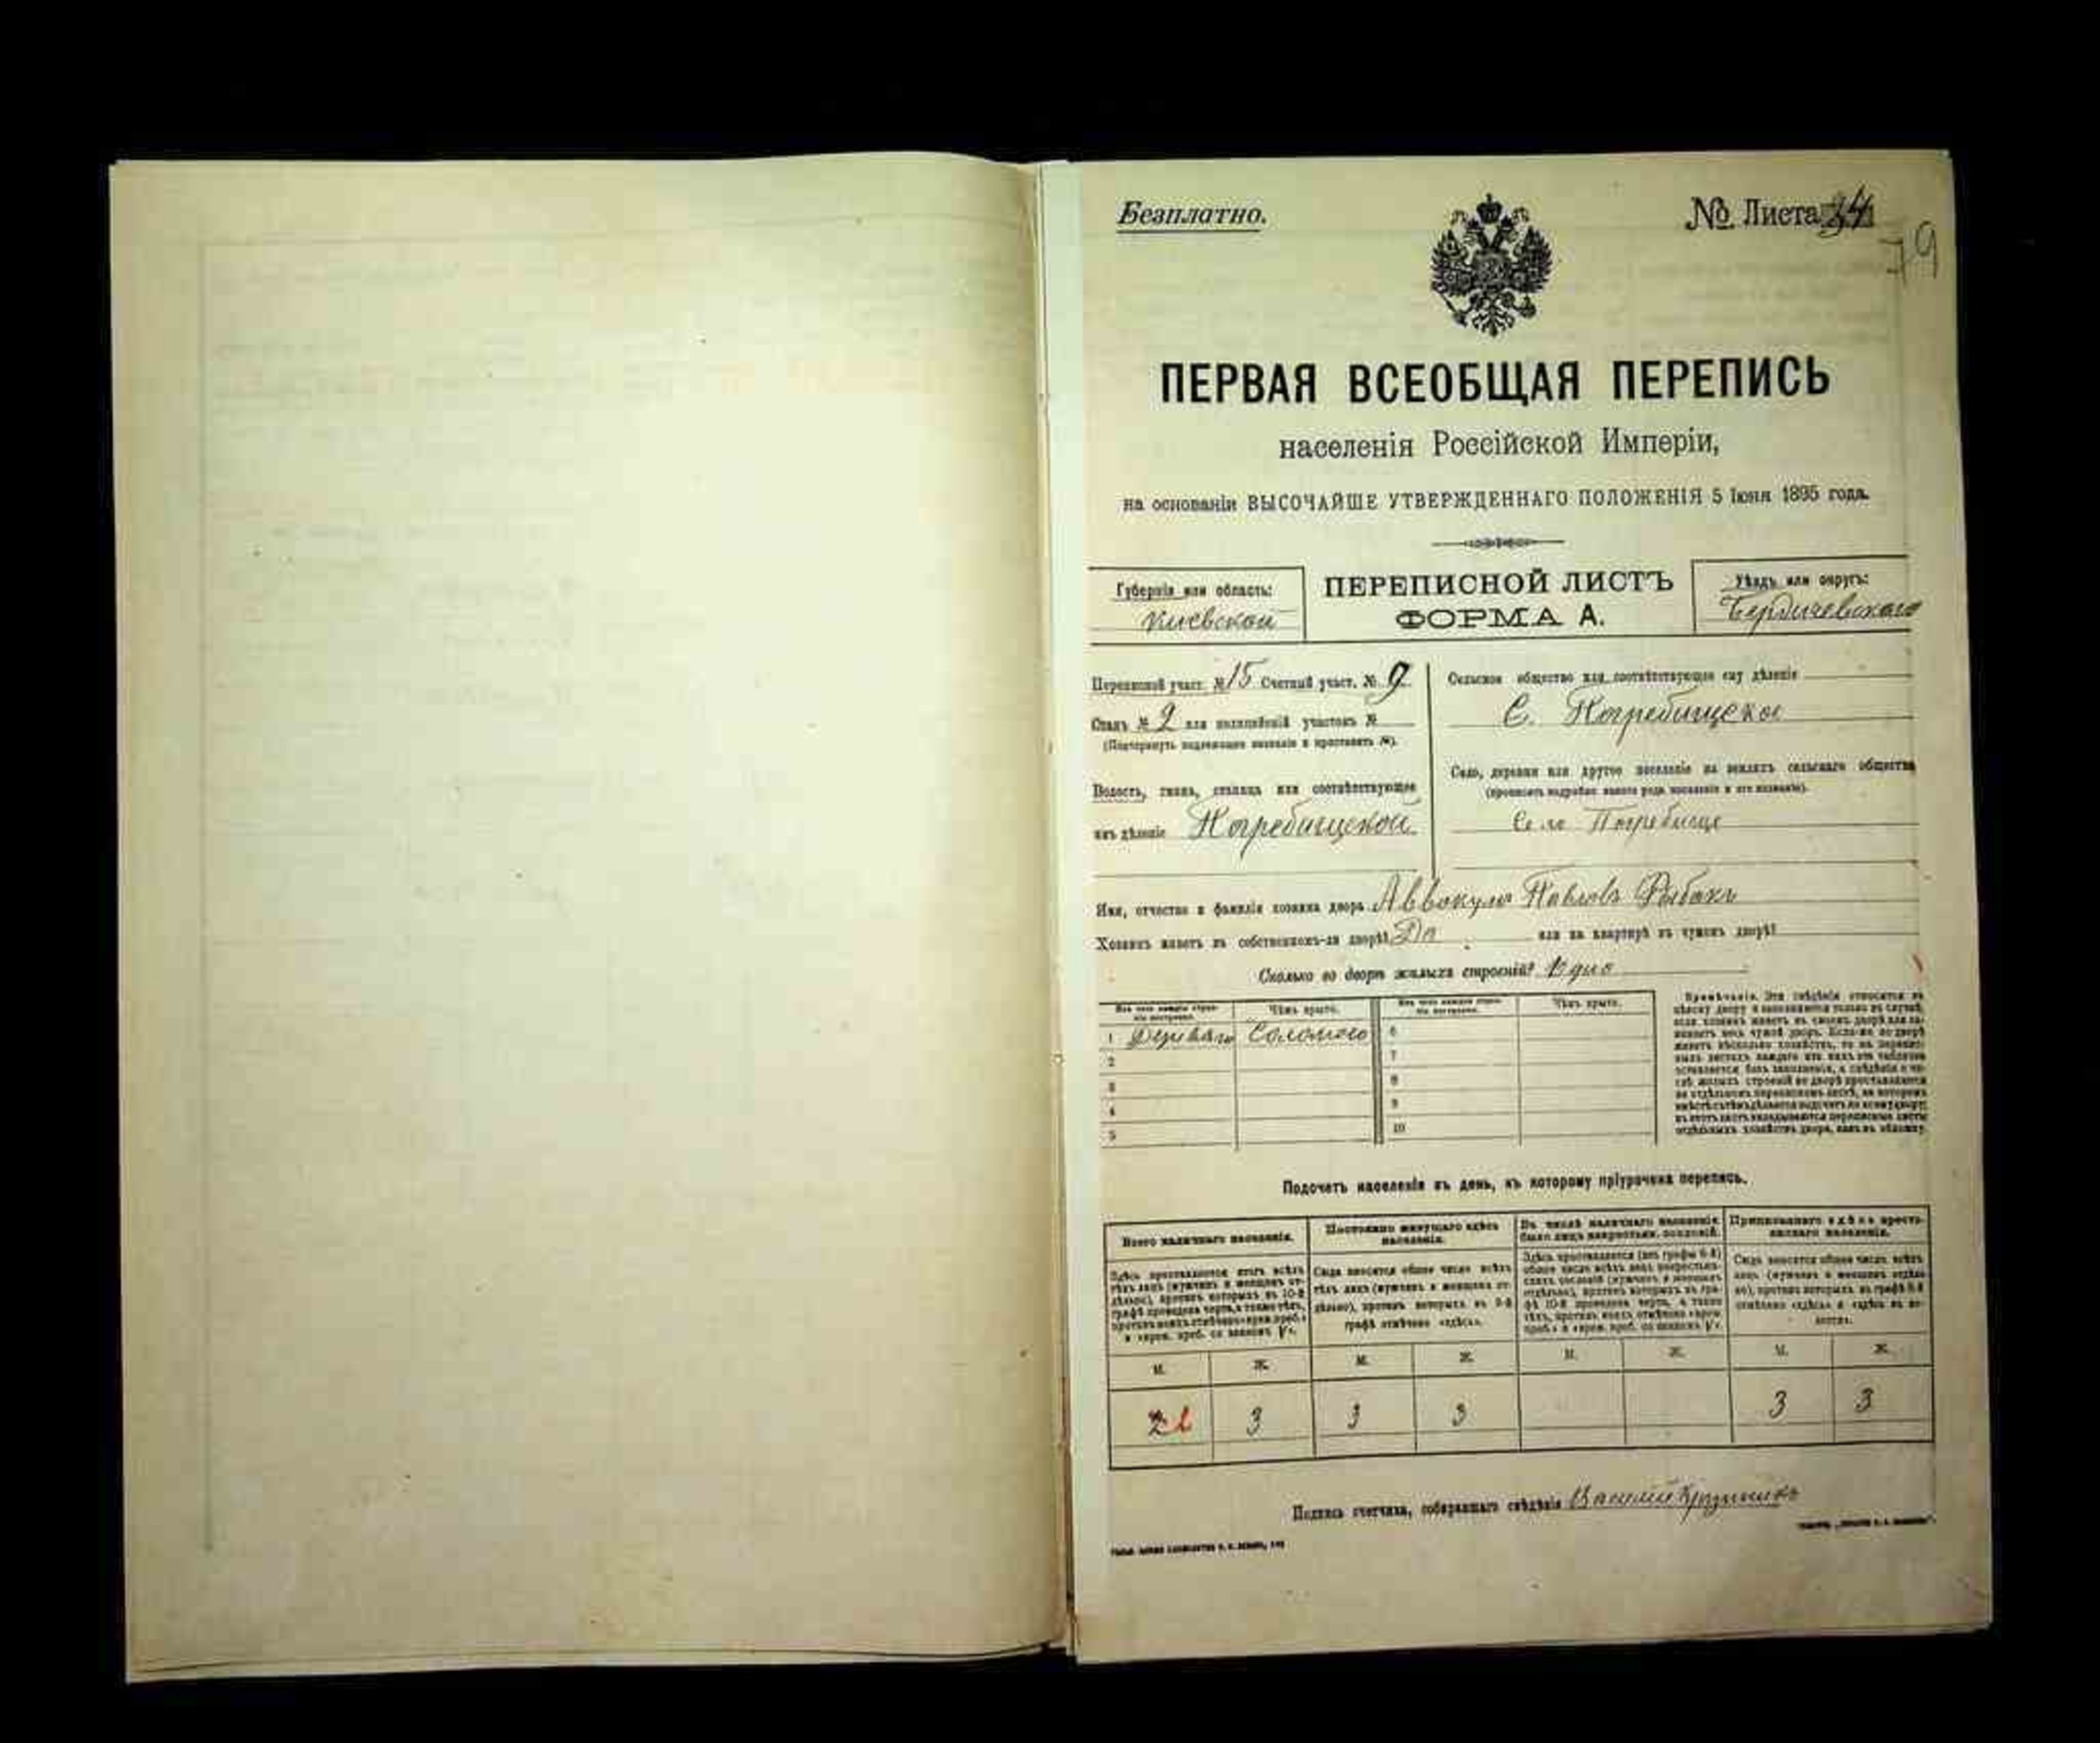 Безплатно.
№ Листа 34
79
ПЕРВАЯ ВСЕОБЩАЯ ПЕРЕПИСЬ
населенія Россійской Имперіи,
на основаніи ВЫСОЧАЙШЕ УТВЕРЖДЕННАГО ПОЛОЖЕНІЯ 5 Іюня 1895 года.
Губернія или область:
Кіевской
ПЕРЕПИСНОЙ ЛИСТЪ
ФОРМА А.
Уѣздъ или округъ:
Бердичевскаго
Переписной участ. № 15 Счетный участ. № 9
Станъ № 2 или полицейскій участокъ №
(Подчеркнуть надлежащее названіе и проставить №).
Волость, гмина, станица или соотвѣтствующее
имъ дѣленіе Погребищенской
Сельское общество или соотвѣтствующее ему дѣленіе
С. Погребищское
Село, деревня или другое поселеніе на земляхъ сельскаго общества
(прописать подробно какого рода поселеніе и его названіе).
Село Погребище
Имя, отчество и фамилія хозяина двора Аввокумъ Павловъ Рыбакъ
Хозяинъ живетъ въ собственномъ-ли дворѣ? Да или на квартирѣ въ чужомъ дворѣ?
Сколько во дворѣ жилыхъ строеній? Одно
Изъ чего каждое строе-
ніе построено.
Чѣмъ крыто.
Изъ чего каждое строе-
ніе построено.
Чѣмъ крыто.
1 Дерева Соломою 6
2 7
3 8
4 9
5 10
Примѣчаніе. Эти свѣдѣнія относятся къ
цѣлому двору и заполняются только въ случаѣ,
если хозяинъ живетъ въ своемъ дворѣ или за-
нимаетъ весь чужой дворъ. Если-же во дворѣ
живетъ нѣсколько хозяйствъ, то на перепис-
ныхъ листахъ каждаго изъ нихъ эта табличка
оставляется безъ заполненія, а свѣдѣнія о чи-
слѣ жилыхъ строеній во дворѣ проставляются
на отдѣльномъ переписномъ листѣ, на которомъ
вмѣстѣ съ тѣмъ дѣлается подсчетъ по всему двору;
въ этотъ листъ вкладываются переписные листы
отдѣльныхъ хозяйствъ двора, какъ въ обложку.
Подсчетъ населенія въ день, къ которому пріурочена перепись.
Всего наличнаго населенія.
Постоянно живущаго здѣсь
населенія.
Въ числѣ наличнаго населенія
было лицъ некрестьян. сословій.
Приписаннаго здѣсь кресть-
янскаго населенія.
Здѣсь проставляется итогъ всѣхъ
тѣхъ лицъ (мужчинъ и женщинъ от-
дѣльно), противъ которыхъ въ 10-й
графѣ проведена черта, а также тѣхъ,
противъ коихъ отмѣчено «врем. преб.»
Сюда вносится общее число всѣхъ
тѣхъ лицъ (мужчинъ и женщинъ от-
дѣльно), противъ которыхъ въ 9-й
графѣ отмѣчено «здѣсь».
Сюда вносится общее число всѣхъ
лицъ (мужчинъ и женщинъ отдѣль-
но), противъ которыхъ въ графѣ 8-й
М. Ж. М. Ж. М. Ж. М. Ж.
2 3 3 3 3 3
Подпись счетчика, собиравшаго свѣдѣнія Василій